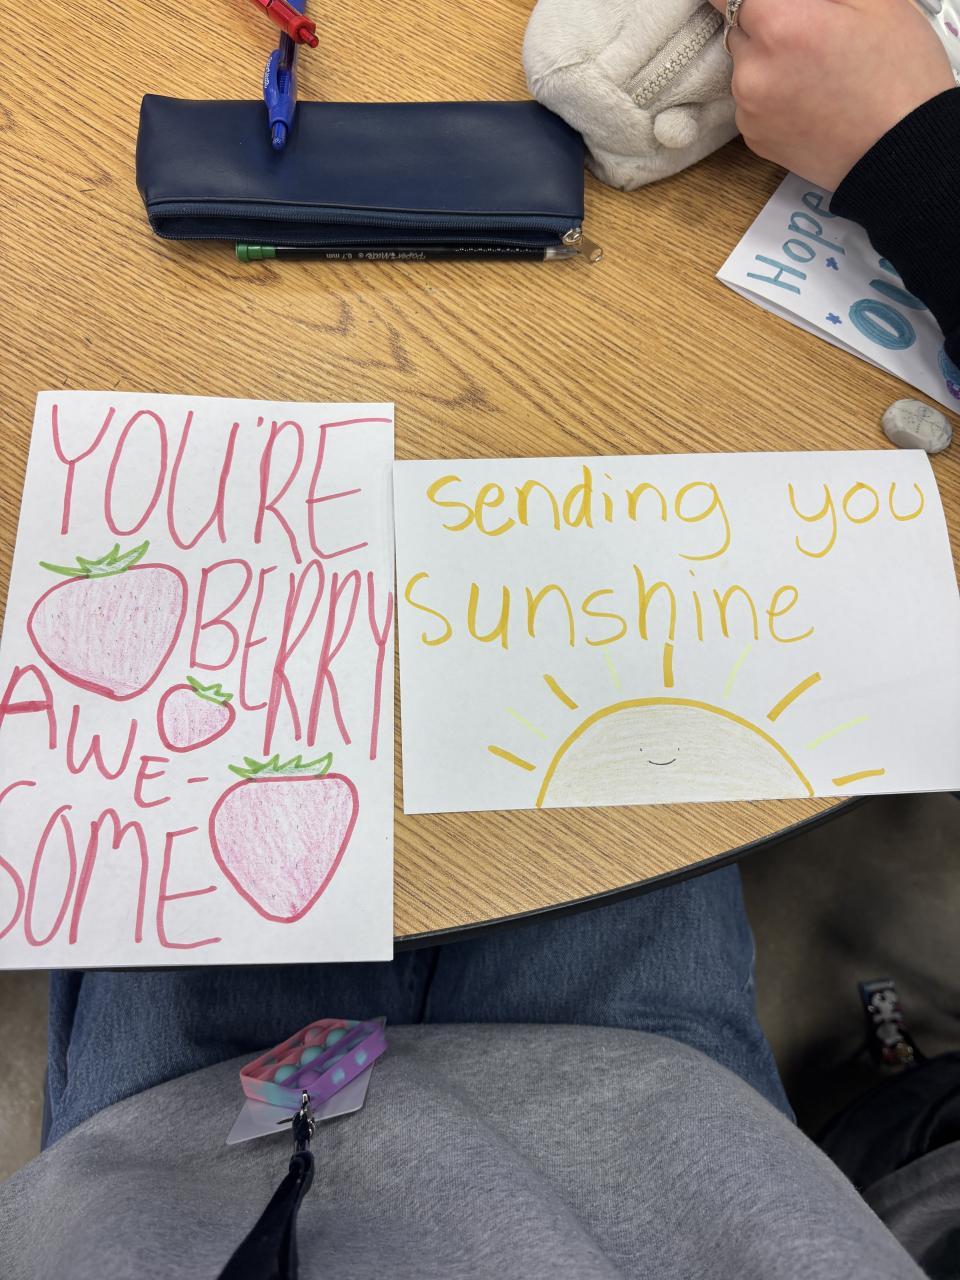 Paper Mate 0.7 mm
Hope
YOU'RE
BERRY
AWE-
SOME
sending you
sunshine